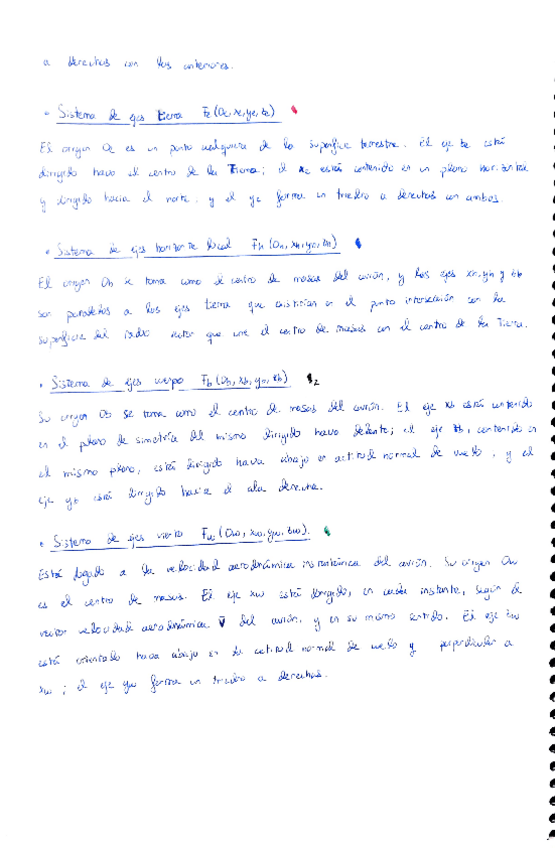 a derechas con los anteriores.
• Sistema de ejes tierra Fe (Oe, xe, ye, ze)
El origen Oe es un punto cualquiera de la superficie terrestre. El eje ze está
dirigido hacia el centro de la Tierra; el xe está contenido en un plano horizontal
y dirigido hacia el norte, y el ye forma un triedro a derechas con ambos.
• Sistema de ejes horizonte local Fh (Oh, xh, yh, zh)
El origen Oh se toma como el centro de masas del avión, y los ejes xh, yh y zh
son paralelos a los ejes tierra que existirían en el punto intersección con la
superficie del radio vector que une el centro de masas con el centro de la Tierra.
• Sistema de ejes cuerpo Fb (Ob, xb, yb, zb)
Su origen Ob se toma como el centro de masas del avión. El eje xb está contenido
en el plano de simetría del mismo dirigido hacia delante; el eje zb, contenido en
el mismo plano, está dirigido hacia abajo en actitud normal de vuelo, y el
eje yb está dirigido hacia el ala derecha.
• Sistema de ejes viento Fw (Ow, xw, yw, zw).
Está ligado a la velocidad aerodinámica instantánea del avión. Su origen Ow
es el centro de masas. El eje xw está dirigido, en cada instante, según el
vector velocidad aerodinámica V del avión, y en su mismo sentido. El eje zw
está orientado hacia abajo en la actitud normal de vuelo y perpendicular a
xw; el eje yw forma un triedro a derechas.